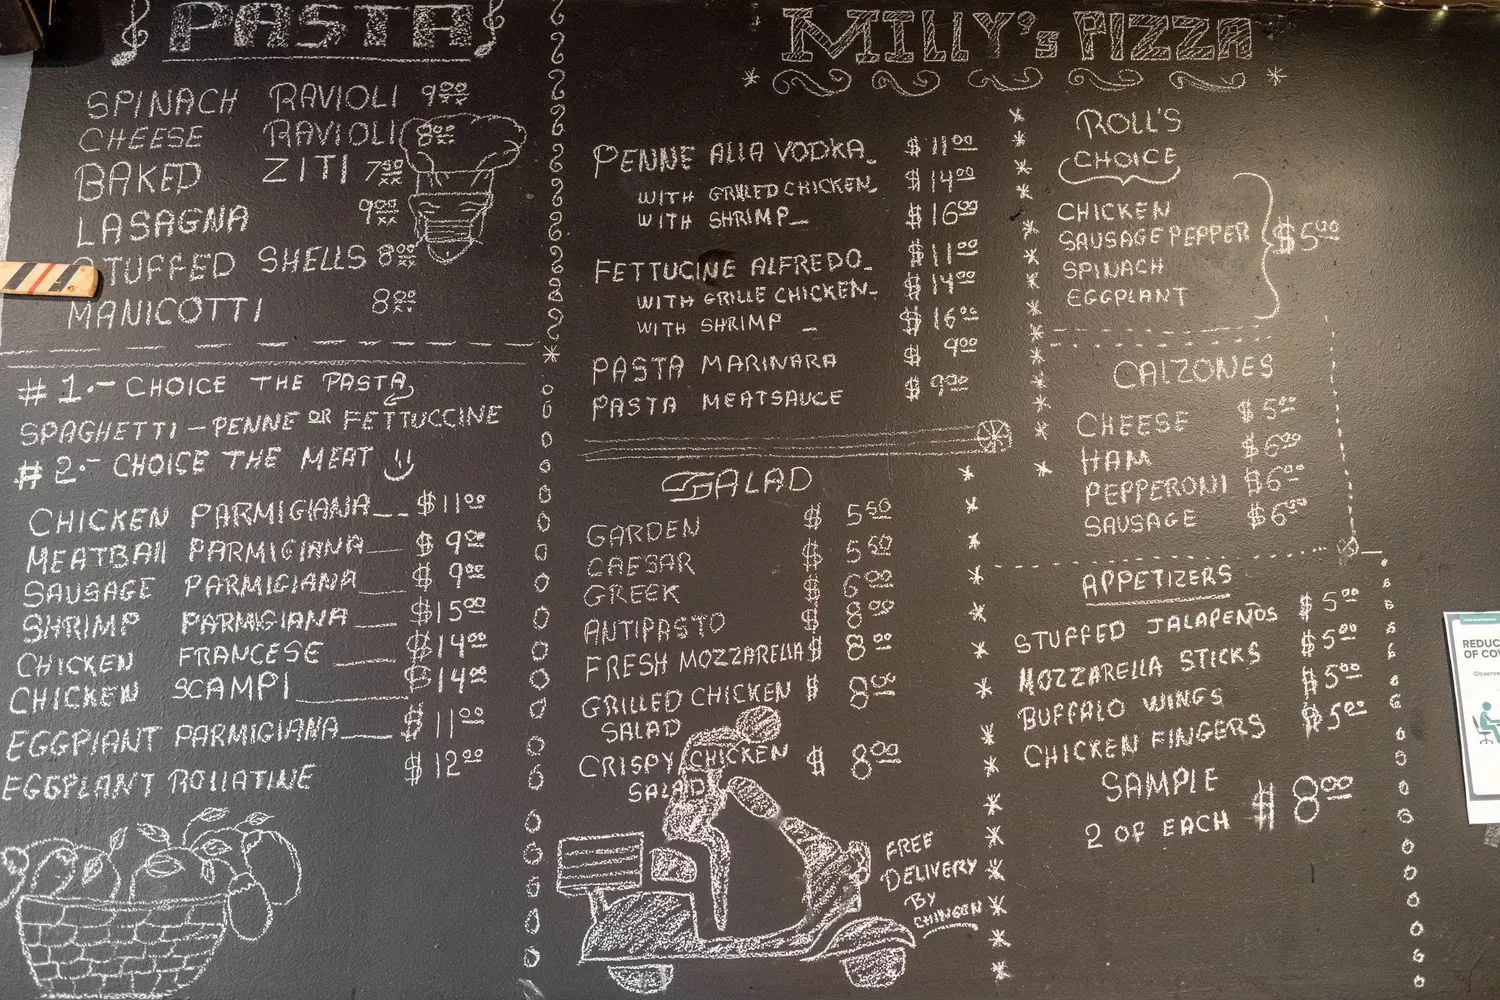 PASTA
SPINACH RAVIOLI 900
CHEESE RAVIOLI 800
BAKED ZITI 750
LASAGNA 900
STUFFED SHELLS 800
MANICOTTI 800
# 1.- CHOICE THE PASTA,
SPAGHETTI - PENNE OR FETTUCCINE
# 2.- CHOICE THE MEAT
CHICKEN PARMIGIANA $1100
MEATBALL PARMIGIANA $900
SAUSAGE PARMIGIANA $900
SHRIMP PARMIGIANA $1500
CHICKEN FRANCESE $1400
CHICKEN SCAMPI $1400
EGGPLANT PARMIGIANA $1100
EGGPLANT ROLLATINE $1200
MILLY's PIZZA
PENNE ALLA VODKA $1100
WITH GRILLED CHICKEN $1400
WITH SHRIMP $1600
FETTUCINE ALFREDO $1100
WITH GRILLE CHICKEN $1400
WITH SHRIMP $1600
PASTA MARINARA $ 900
PASTA MEATSAUCE $900
SALAD
GARDEN $ 550
CAESAR $ 550
GREEK $ 600
ANTIPASTO $ 800
FRESH MOZZARELLA $ 800
GRILLED CHICKEN $ 800
SALAD
CRISPY CHICKEN $ 800
SALAD
FREE
DELIVERY
BY
ROLL'S
CHOICE
CHICKEN
SAUSAGE PEPPER $500
SPINACH
EGGPLANT
CALZONES
CHEESE $500
HAM $600
PEPPERONI $600
SAUSAGE $600
APPETIZERS
STUFFED JALAPEÑOS $500
MOZZARELLA STICKS $500
BUFFALO WINGS $500
CHICKEN FINGERS $500
SAMPLE
2 OF EACH $800
REDUC
OF CO
Observe